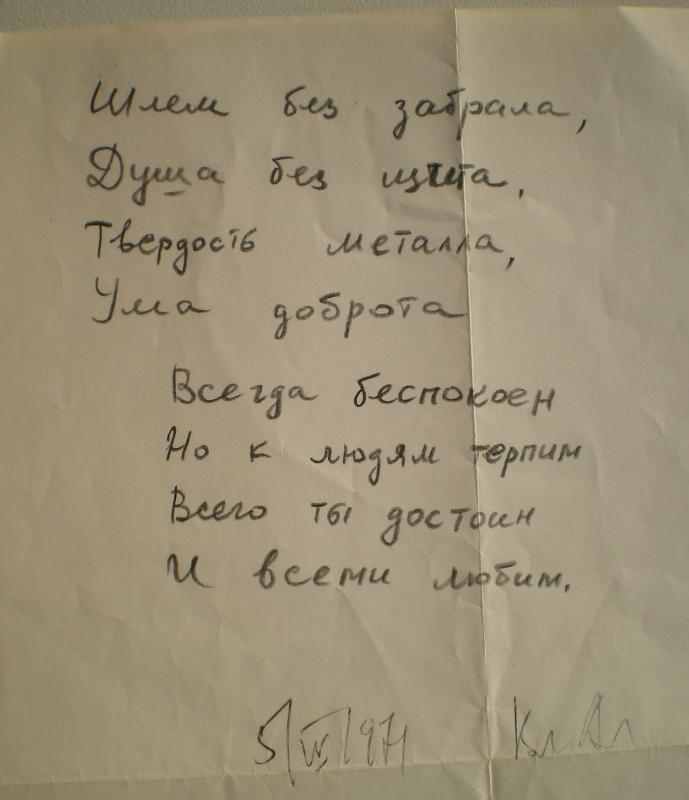 Шлем без забрала,
Душа без щита,
Твердость металла,
Ума доброта
Всегда беспокоен
Но к людям терпим
Всего ты достоин
И всеми любим.